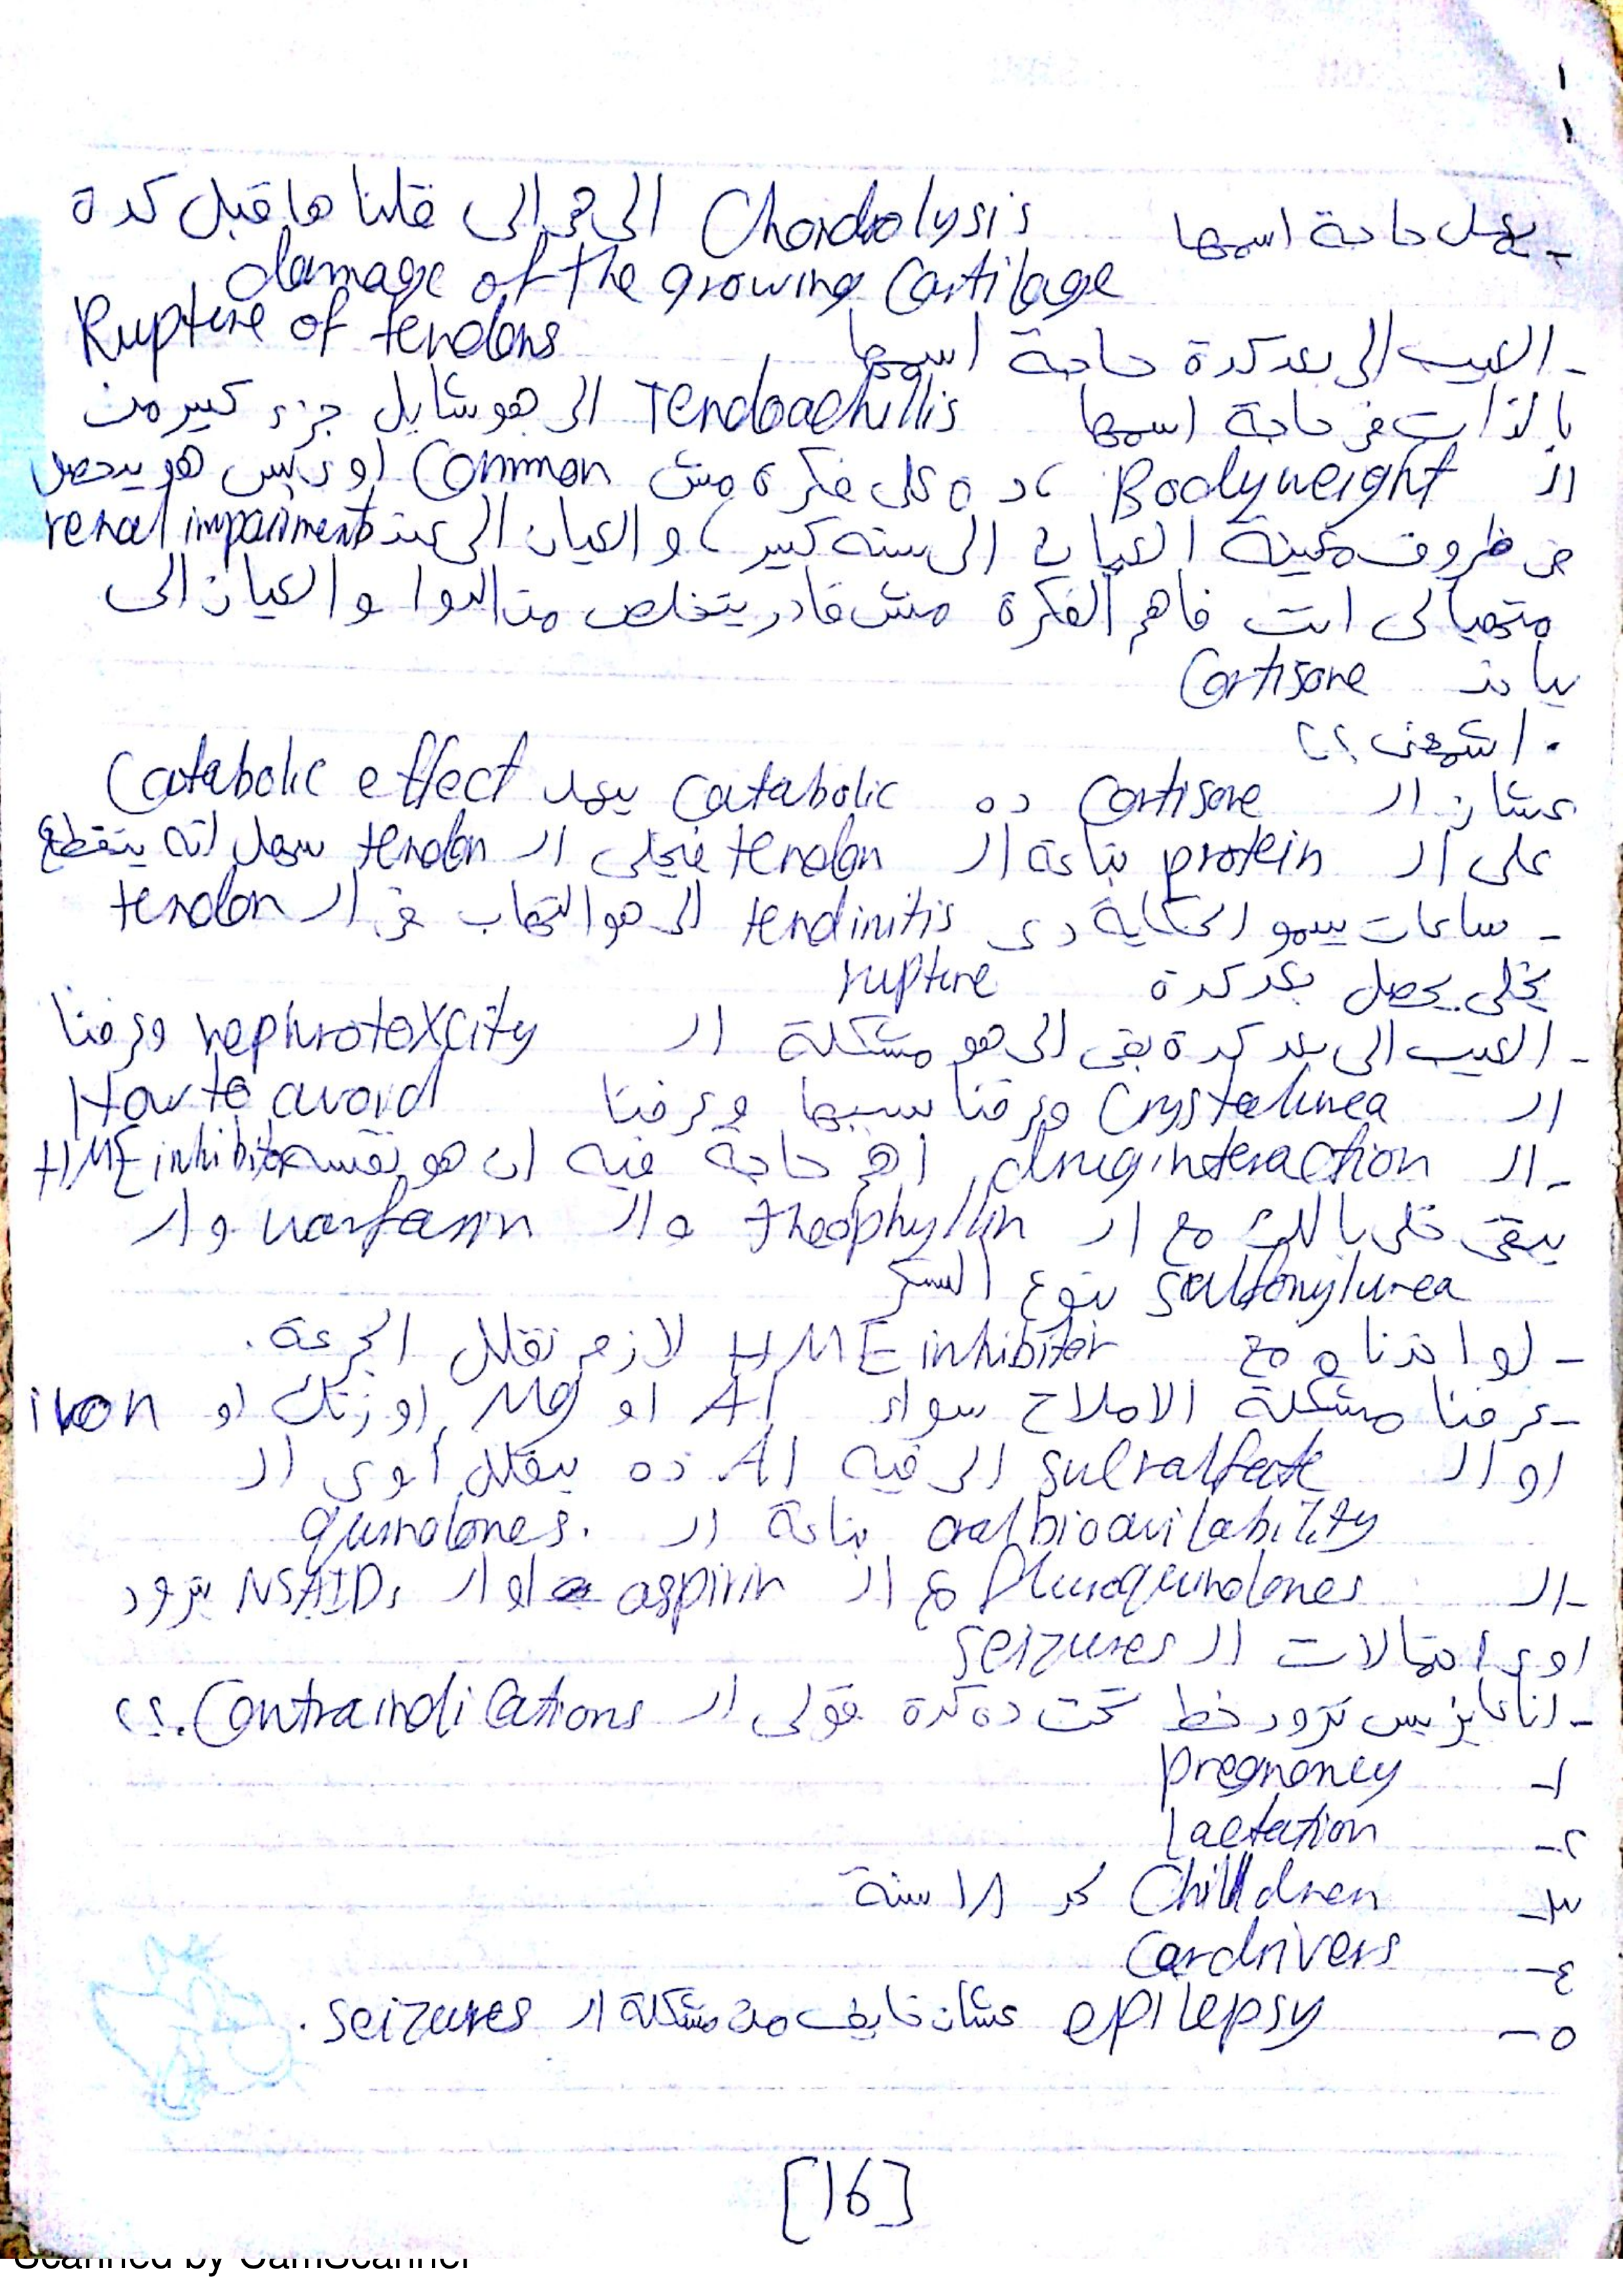 - بيعمل حاجة اسمها Chondrolysis الى هى الى قلناها قبل كدة
damage of the growing Cartilage
- العيب الى بعد كدة حاجة اسمها Rupture of tendons
بالذات فى حاجة اسمها Tendoachillis الى هو شايل جزء كبير من
ال Bodyweight ، ده على فكرة مش Common اوى بس هو بيحصل
فى ظروف معينة العيان الى سنه كبير ، و العيان الى عنده renal impairment
متهيألى انت فاهم الفكرة مش قادر يتخلص من الدوا و العيان الى
بياخد Cortisone
. اشمعنى ؟؟
عشان ال Cortisone ده Catabolic بيعمل Catabolic effect
على ال protein بتاعة ال tendon فيخلى ال tendon سهل انه يتقطع
- ساعات بيسمو الحكاية دى tendinitis الى هو التهاب فى ال tendon
يخلى يحصل بعد كدة rupture
- العيب الى بعد كدة بقى الى هو مشكلة ال nephrotoxcity وعرفنا
ال Crystalurea وعرفنا سببها وعرفنا How to avoid
- ال drug interaction اهم حاجة فيه ان هو نفسه HME inhibitor
يبقى خلى بالك مع ال theophyllin وال warfarin وال
sulfonylurea بتوع السكر
- لو اخدناه مع HME inhibitor لازم نقلل الجرعة .
- عرفنا مشكلة الاملاح سواء Al او Mg او زنك او iron
او ال sucralfate الى فيه Al ده بيقلل أوى ال
oral bioavilability بتاعة ال quinolones.
- ال Fluroquinolones مع ال aspirin او ال NSAIDs بتزود
اوى احتمالات ال seizures
- انا عايز بس تزود خط تحت ده كدة قولى ال Contraindications.؟؟
١- pregnancy
٢- Lactation
٣- Children لحد ١٨ سنة
٤- Car drivers
٥- epilepsy عشان خايف من مشكلة ال seizures .
[16]
Scanned by CamScanner